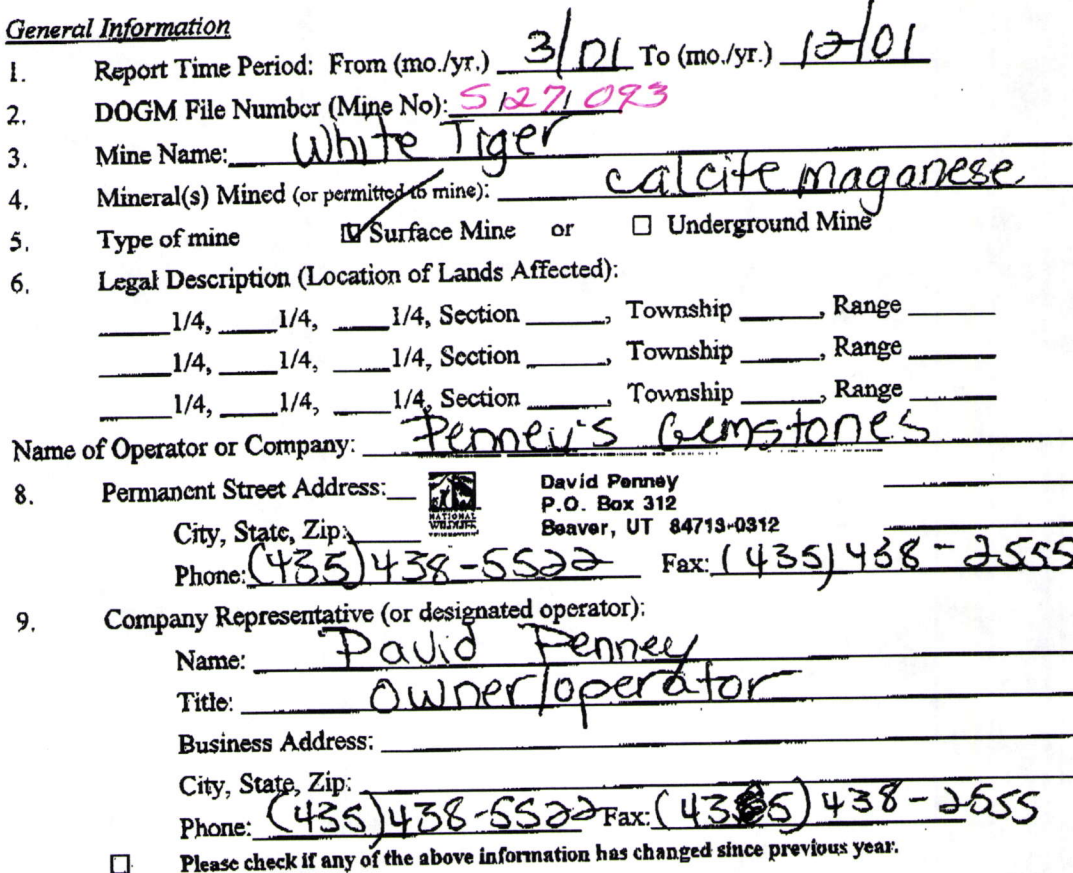 General Information
1. Report Time Period: From (mo./yr.) 3/01 To (mo./yr.) 12/01
2. DOGM File Number (Mine No): S/27/093
3. Mine Name: White Tiger
4. Mineral(s) Mined (or permitted to mine): calcite maganese
5. Type of mine ☑ Surface Mine or ☐ Underground Mine
6. Legal Description (Location of Lands Affected):
_____1/4, _____1/4, _____1/4, Section ______, Township ______, Range ______
_____1/4, _____1/4, _____1/4, Section ______, Township ______, Range ______
_____1/4, _____1/4, _____1/4, Section ______, Township ______, Range ______
Name of Operator or Company: Penney's Gemstones
8. Permanent Street Address: David Penney
P.O. Box 312
NATIONAL WILDLIFE
City, State, Zip: Beaver, UT 84713-0312
Phone: (435) 438-5522 Fax: (435) 438-2555
9. Company Representative (or designated operator):
Name: David Penney
Title: owner/operator
Business Address:
City, State, Zip:
Phone: (435) 438-5522 Fax: (435) 438-2555
☐ Please check if any of the above information has changed since previous year.